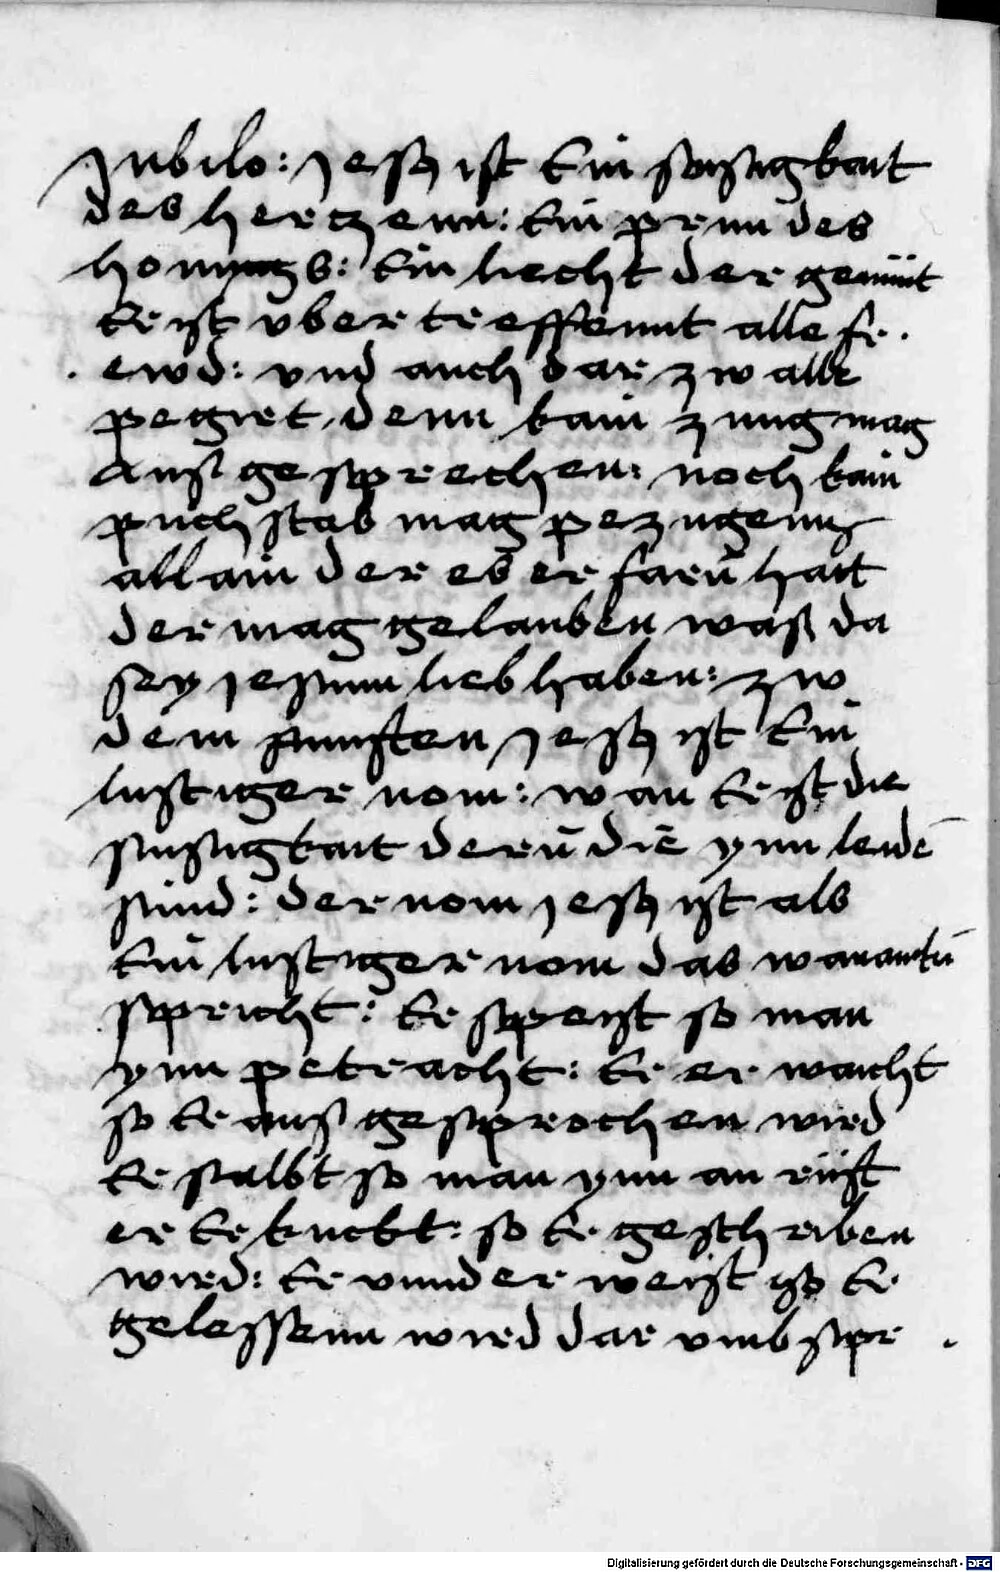 Jubilo: Jesus ist Ein susigkait
des hertzenn: Ein prun des
honnygs: Ein liecht der gemüt
Er ist vbertreffennt alle fr.
ewd: vnd auch dar zw alle
pegiet, denn kain zung mag
Ausgesprechen: noch kain
puchstab mag pezugenn
allain der es erfarū hatt
der mag gelauben was da
sey jesum lieb haben: zw
dem funften Jesus ist Ein
lustiger nom: wan Er ist die
susigkait derū die ynn leidē
sind: der nom jesus ist als
Ein lustiger nom das
spricht: Er speist so man
ynn petracht: Er er waicht
so Er ausgesprochen wird
Er salbt so man ynn an rüft
er Erkuckt: so Er geschriben
wird: Er vnnderweist so Er
gelessenn wird dar vmb spr
Digitalisierung gefördert durch die Deutsche Forschungsgemeinschaft - DFG